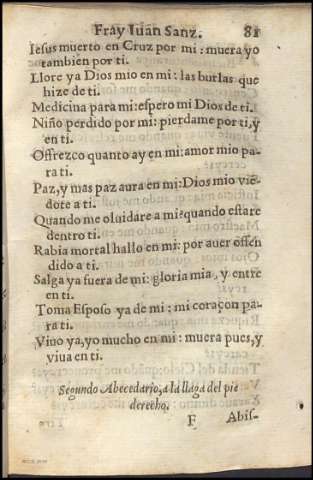 Fray Iuan Sanz. 81
Iesus muerto en Cruz por mi: muera yo
tambien por ti.
Llore ya Dios mio en mi: las burlas que
hize de ti.
Medicina para mi: espero mi Dios de ti.
Niño perdido por mi: pierdame por ti, y
en ti.
Offrezco quanto ay en mi: amor mio pa-
ra ti.
Paz, y mas paz aura en mi: Dios mio vie-
dote a ti.
Quando me oluidare a mi? quando estare
dentro ti.
Rabia mortal hallo en mi: por auer offen
dido a ti.
Salga ya fuera de mi: gloria mia, y entre
en ti.
Toma Esposo ya de mi: mi coraçon pa-
ra ti.
Viuo ya, yo mucho en mi: muera pues, y
viua en ti.
Segundo Abecedario, a la llaga del pie
derecho.
F Abis-